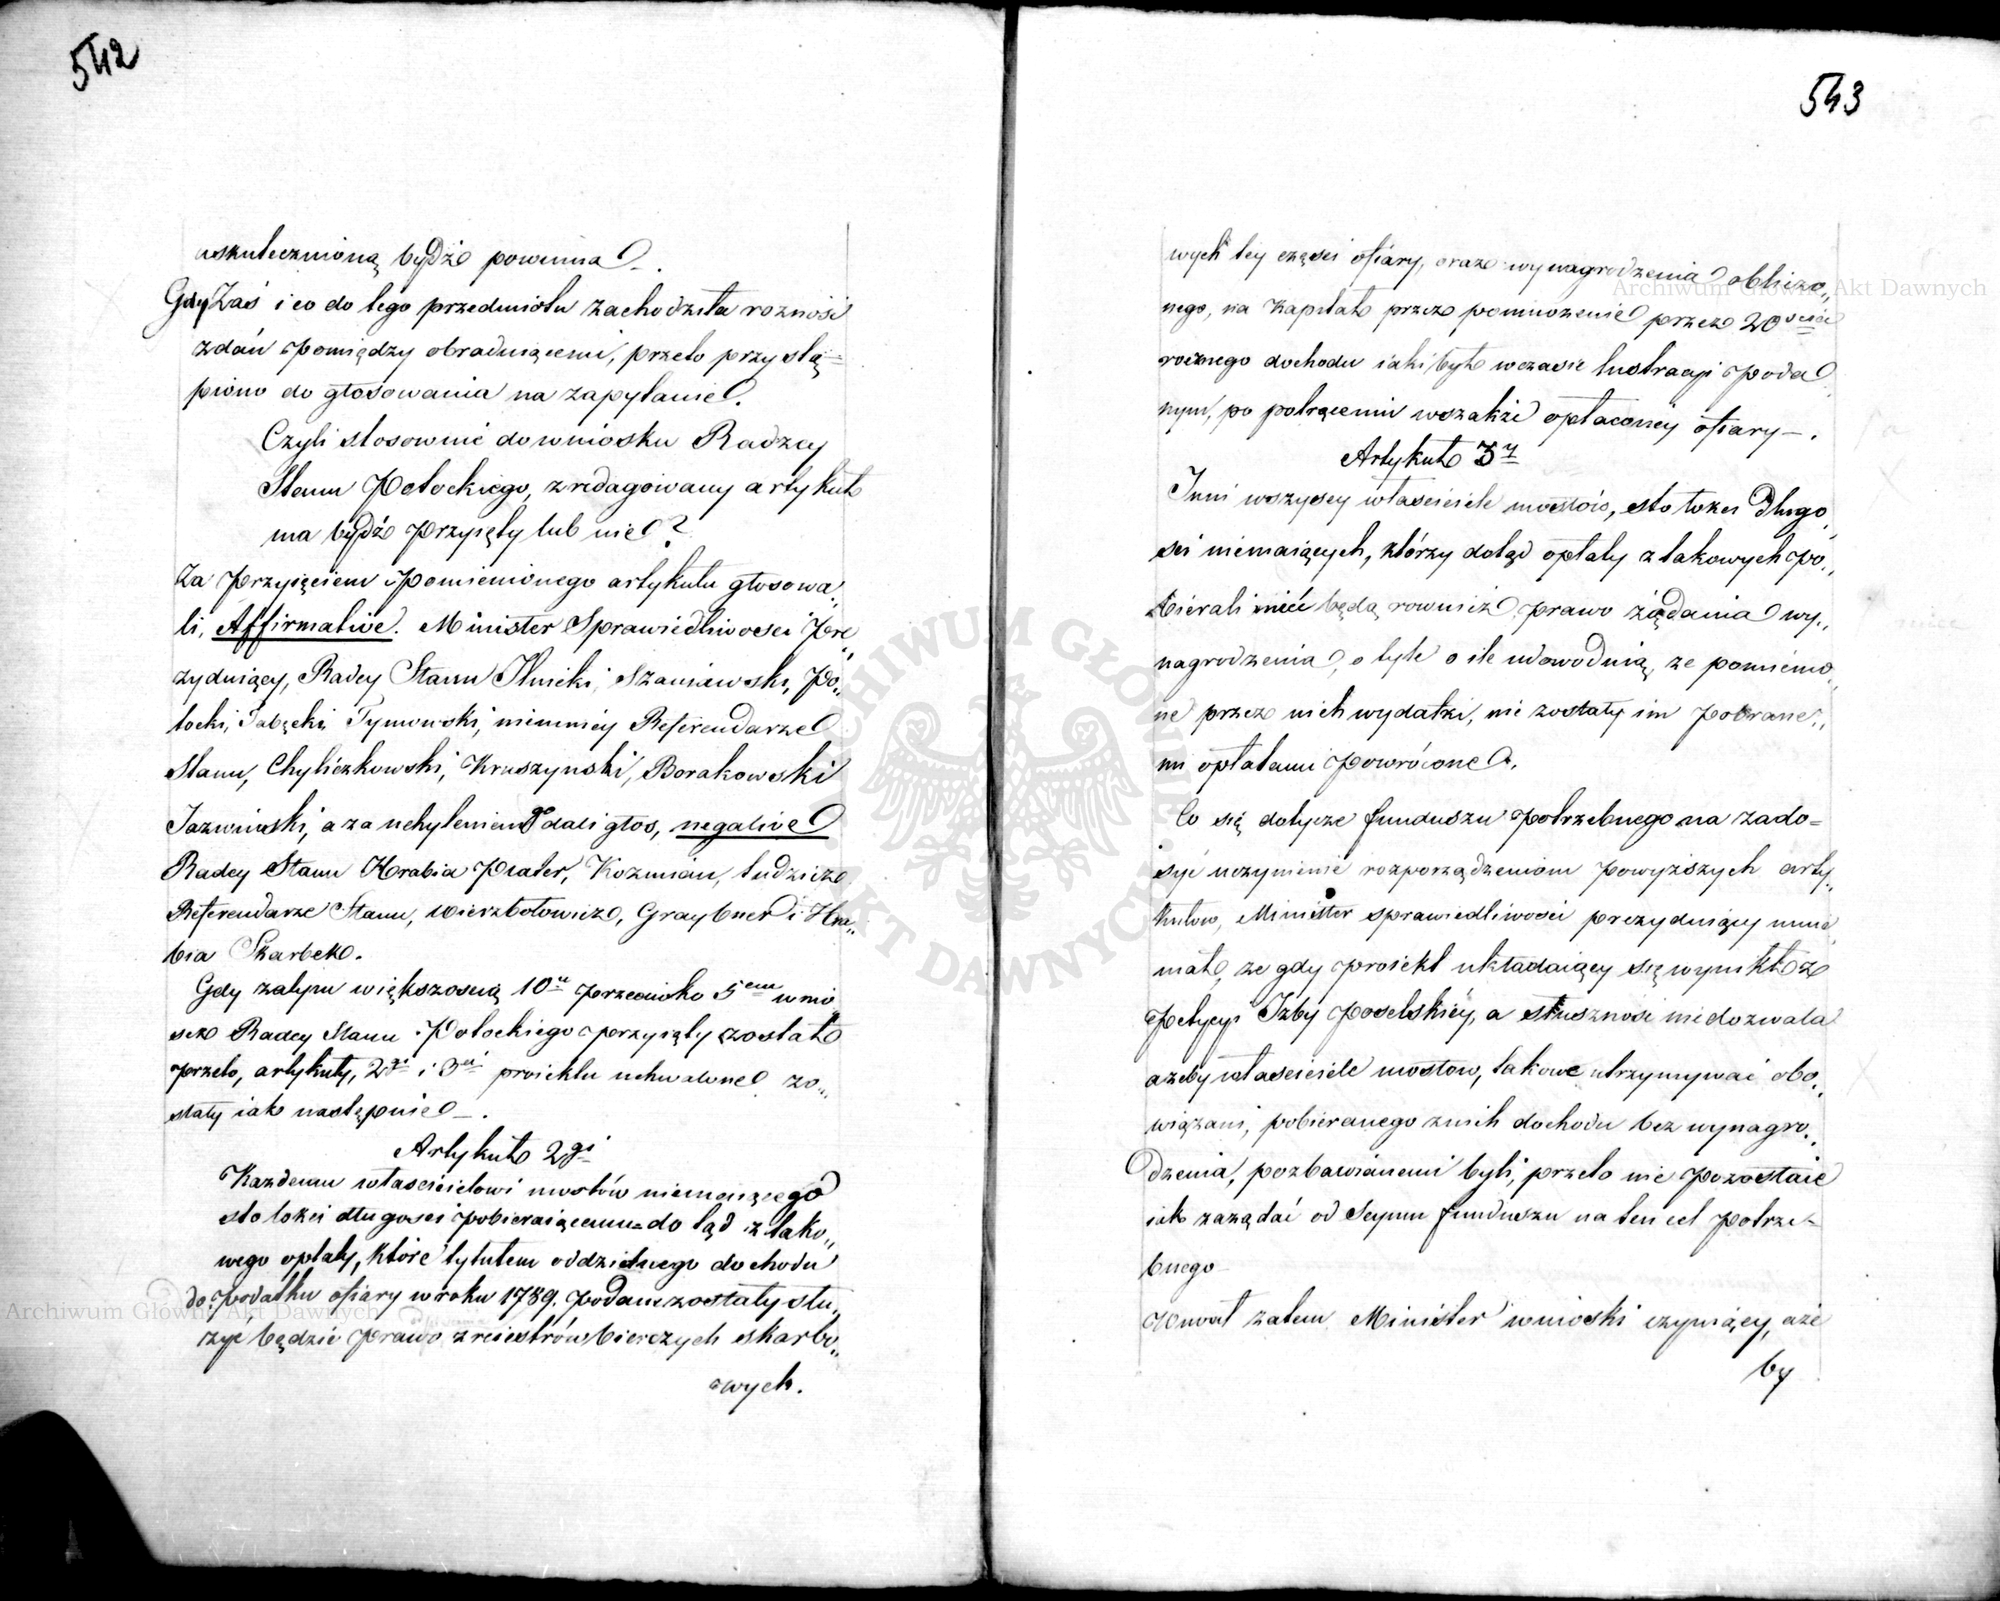 542
uskutecznioną bydź powinna.
Gdy Zaś i co do tego przedmiotu zachodziła rozność
zdań pomiędzy obraduiącemi, przeto przystą=
piono do głosowania na zapytanie.
Czyli stosownie do wniosku Radzcy
Stanu Potockiego, zredagowany artykuł
ma bydź przyięty lub nie?
Za przyięciem wspomienionego artykułu głosowa„
li, Affirmative. Minister Sprawiedliwości Pre„
zyduiący, Radcy Stanu Ilnicki, Szaniawski, Po„
tocki, Tymowski, niemniéy Referendarze
Stanu, Chyliczkowski, Kruszynski, Borakowski
Jazwinski, a za uchyleniem dali głos, negative
Radcy Stanu Hrabia Plater, Kozmian, tudzież
Referendarze Stanu, Wierzbołowicz, Graybner i Hra„
bia Skarbek.
Gdy zatym większoscią 10u przeciwko 5em wnio
sek Radcy Stanu Potockiego przyięty został
przeto, artykuły, 2gi i 3ci proiektu uchwalone zo„
stały iak następnie.
Artykuł 2gi
Kazdemu właścicielowi mostów niemaiącego
sto łokci długości pobieraiącemu do tąd z tako„
wego opłaty, które tytułem oddzielnego dochodu
do podatku ofiary w roku 1789. podane zostały słu„
żyć będzie prawo z reiestrów bierczych skarbo„
wych.
543
wych téy części ofiary, oraz wynagrodzenia obliczo„
nego, na kapitał przez pomnożenie przez 20
rocznego dochodu iaki był w czasie lustracyi poda
nym, po potrąceniu wszakże opłaconéy ofiary.
Artykuł 3y
Inni wszyscy właściciele mostów, sto łokci długo„
ści niemaiących, którzy dotąd opłaty z takowych po„
bierali mieć będą rownież prawo żądania wy„
nagrodzenia, o tyle o ile udowodnią, że poniesio„
ne przez nich wydatki, nie zostały im pobrane„
mi opłatami powrócone.
Co się dotycze funduszu potrzebnego na zado=
syć uczynienie rozporządzeniom powyższych arty„
kułow, Minister sprawiedliwości prezyduiący mnie
mał, że gdy proiekt układaiący się wynikł z
Petycyi Izby Poselskiéy, a słuszność niedozwala
ażeby właściciele mostow, takowe utrzymywać obo„
wiązani, pobieranego z nich dochodu bez wynagro„
dzenia, pozbawianemi byli, przeto nie pozostaie
iak zażądać od Seymu funduszu na ten cel potrze=
bnego
Uważ zatem Minister wnioski czyniący, aże
by
Archiwum Główne Akt Dawnych
Archiwum Główne Akt Dawnych
ARCHIWUM GŁÓWNE AKT DAWNYCH